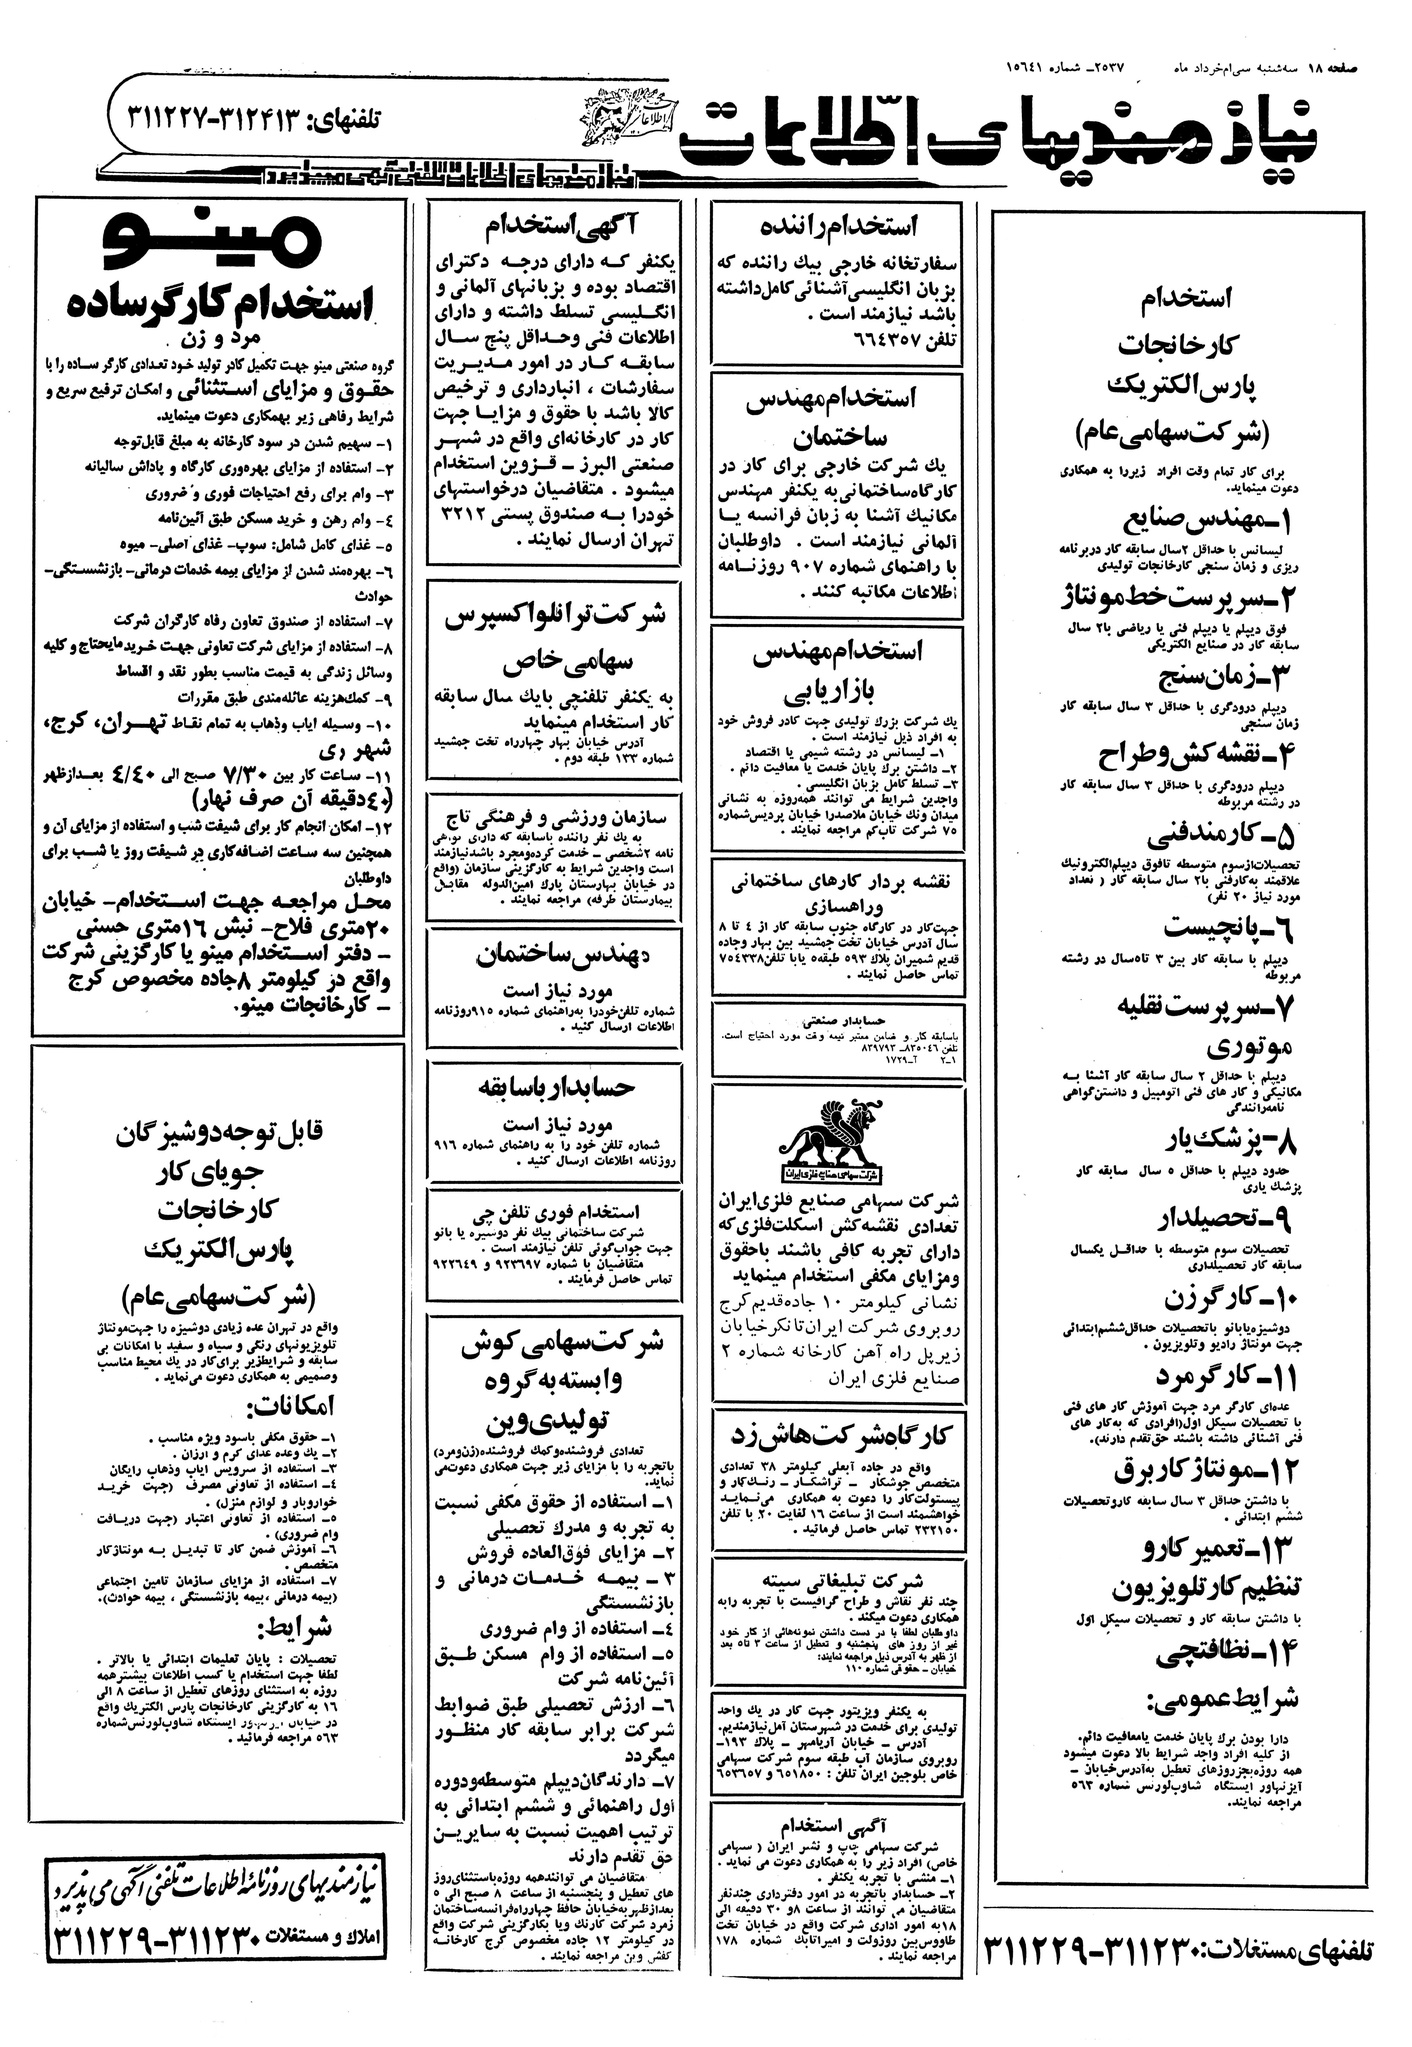 صفحه ۱۸ سه‌شنبه سی‌ام خرداد ماه ۲۵۳۷ـ شماره ۱۵۶۴۱
نیازمندیهای اطلاعات
اطلاعات
تلفنهای: ۳۱۲۴۱۳-۳۱۱۲۲۷
نیازمندیهای اطلاعات تلفنی آگهی میپذیرد
استخدام
کارخانجات
پارس الکتریک
(شرکت سهامی عام)
برای کار تمام وقت افراد زیررا به همکاری
دعوت مینماید.
۱ـ مهندس صنایع
لیسانس با حداقل ۲سال سابقه کار دربرنامه
ریزی و زمان سنجی کارخانجات تولیدی
۲ـ سرپرست خط مونتاژ
فوق دیپلم یا دیپلم فنی یا ریاضی با۲ سال
سابقه کار در صنایع الکتریکی
۳ـ زمان سنج
دیپلم درودگری با حداقل ۳ سال سابقه کار
زمان سنجی
۴ـ نقشه کش و طراح
دیپلم درودگری با حداقل ۳ سال سابقه کار
در رشته مربوطه
۵ـ کارمند فنی
تحصیلات‌ازسوم متوسطه تافوق دیپلم‌الکترونیک
علاقمند به‌کارفنی با۲ سال سابقه کار ( تعداد
مورد نیاز ۲۰ نفر)
۶ـ پانچیست
دیپلم با سابقه کار بین ۳ تا۵سال در رشته
مربوطه
۷ـ سرپرست نقلیه
موتوری
دیپلم با حداقل ۲ سال سابقه کار آشنا به
مکانیکی و کار های فنی اتومبیل و داشتن‌گواهی
نامه‌رانندگی
۸ـ پزشک‌یار
حدود دیپلم با حداقل ۵ سال سابقه کار
پزشک یاری
۹ـ تحصیلدار
تحصیلات سوم متوسطه با حداقل یکسال
سابقه کار تحصیلداری
۱۰ـ کارگر زن
دوشیزه‌یابانو باتحصیلات حداقل‌ششم‌ابتدائی
جهت مونتاژ رادیو وتلویزیون .
۱۱ـ کارگر مرد
عده‌ای کارگر مرد جهت آموزش کار های فنی
با تحصیلات سیکل اول(افرادی که به‌کار های
فنی آشنائی داشته باشند حق‌تقدم دارند).
۱۲ـ مونتاژ کار برق
با داشتن حداقل ۳ سال سابقه کاروتحصیلات
ششم ابتدائی .
۱۳ـ تعمیر کار و
تنظیم کار تلویزیون
با داشتن سابقه کار و تحصیلات سیکل اول
۱۴ـ نظافتچی
شرایط عمومی:
دارا بودن برک پایان خدمت یامعافیت دائم.
از کلیه افراد واجد شرایط بالا دعوت میشود
همه روزه‌بجزروزهای تعطیل به‌آدرس‌خیابان ـ
آیزنهاور ایستگاه شاوب‌لورنس شماره ۵۶۳
مراجعه نمایند.
تلفنهای مستغلات: ۳۱۱۲۳۰-۳۱۱۲۲۹
استخدام راننده
سفارتخانه خارجی بیک راننده که
بزبان انگلیسی‌آشنائی کامل‌داشته
باشد نیازمند است .
تلفن ۶۶۴۳۵۷
استخدام مهندس
ساختمان
یک شرکت خارجی برای کار در
کارگاه‌ساختمانی‌به یکنفر مهندس
مکانیک آشنا به زبان فرانسه یا
آلمانی نیازمند است . داوطلبان
با راهنمای شماره ۹۰۷ روزنامه
اطلاعات مکاتبه کنند .
استخدام مهندس
بازاریابی
یک شرکت بزرک تولیدی جهت کادر فروش خود
به افراد ذیل نیازمند است .
۱ـ لیسانس در رشته شیمی یا اقتصاد
۲ـ داشتن برک پایان خدمت یا معافیت دائم .
۳ـ تسلط کامل بزبان انگلیسی .
واجدین شرایط می توانند همه‌روزه به نشانی
میدان ونک خیابان ملاصدرا خیابان پردیس‌شماره
۷۵ شرکت تاپ‌کم مراجعه نمایند .
نقشه بردار کارهای ساختمانی
وراهسازی
جهت‌کار در کارگاه جنوب سابقه کار از ۴ تا ۸
سال آدرس خیابان تخت جمشید بین بهار وجاده
قدیم شمیران پلاک ۵۹۳ طبقه۵ یابا تلفن۷۵۴۳۳۸
تماس حاصل نمایند .
حسابدار صنعتی
باسابقه کار و ضامن معتبر نیمه وقت مورد احتیاج است.
تلفن ۸۳۵۰۴۶ـ ۸۳۹۷۹۳
۱ـ۲ آـ۱۷۲۹
شرکت سهامی صنایع فلزی ایران
شرکت سهامی صنایع فلزی‌ایران
تعدادی نقشه‌کش اسکلت‌فلزی‌که
دارای تجربه کافی باشند باحقوق
ومزایای مکفی استخدام مینماید
نشانی کیلومتر ۱۰ جاده‌قدیم‌کرج
روبروی شرکت ایران‌تانکرخیابان
زیرپل راه آهن کارخانه شماره ۲
صنایع فلزی ایران
کارگاه شرکت هاش زد
واقع در جاده آبعلی کیلومتر ۳۸ تعدادی
متخصص جوشکار ـ تراشکار ـ رنک‌کار و
پیستولت‌کار را دعوت به همکاری می‌نماید
خواهشمند است از ساعت ۱۶ لغایت ۲۰ با تلفن
۲۳۲۱۵۰ تماس حاصل فرمائید .
شرکت تبلیغاتی سیته
چند نفر نقاش و طراح گرافیست با تجربه رابه
همکاری دعوت میکند .
داوطلبان لطفا با در دست داشتن نمونه‌هائی از کار خود
غیر از روز های پنجشنبه و تعطیل از ساعت ۳ تا۵ بعد
از ظهر به آدرس ذیل مراجعه نمایند:
خیابان ـ حقوقی شماره ۱۱۰
به یکنفر ویزیتور جهت کار در یک واحد
تولیدی برای خدمت در شهرستان آمل نیازمندیم.
آدرس ـ خیابان آریامهر ـ پلاک ۱۹۳ـ
روبروی سازمان آب طبقه سوم شرکت سهامی
خاص بلوجین ایران تلفن : ۶۵۱۸۵۰ و ۶۵۳۶۵۷
آگهی استخدام
شرکت سهامی چاپ و نشر ایران ( سهامی
خاص) افراد زیر را به همکاری دعوت می نماید .
۱ـ منشی با تجربه یکنفر .
۲ـ حسابدار باتجربه در امور دفترداری چندنفر
متقاضیان می توانند از ساعت ۸و ۳۰ دقیقه الی
۱۸به امور اداری شرکت واقع در خیابان تخت
طاووس‌بین روزولت و امیراتابک شماره ۱۷۸
مراجعه نمایند .
آگهی استخدام
یکنفر که دارای درجه دکترای
اقتصاد بوده و بزبانهای آلمانی و
انگلیسی تسلط داشته و دارای
اطلاعات فنی وحداقل پنج سال
سابقه کار در امور مدیریت
سفارشات ، انبارداری و ترخیص
کالا باشد با حقوق و مزایا جهت
کار در کارخانه‌ای واقع در شهر
صنعتی البرز ـ قزوین استخدام
میشود . متقاضیان درخواستهای
خودرا به صندوق پستی ۳۲۱۲
تهران ارسال نمایند .
شرکت ترانلو اکسپرس
سهامی خاص
به یکنفر تلفنچی بایک سال سابقه
کار استخدام مینماید
آدرس خیابان بهار چهارراه تخت جمشید
شماره ۱۳۳ طبقه دوم .
سازمان ورزشی و فرهنگی تاج
به یک نفر راننده باسابقه که دارای گواهی
نامه ۲شخصی ـ خدمت کرده‌ومجرد باشدنیازمند
است واجدین شرایط به کارگزینی سازمان (واقع
در خیابان بهارستان پارک امین‌الدوله مقابل
بیمارستان طرفه) مراجعه نمایند .
مهندس ساختمان
مورد نیاز است
شماره تلفن‌خودرا به‌راهنمای شماره ۹۱۵روزنامه
اطلاعات ارسال کنید .
حسابدار باسابقه
مورد نیاز است
شماره تلفن خود را به راهنمای شماره ۹۱۶
روزنامه اطلاعات ارسال کنید .
استخدام فوری تلفن چی
شرکت ساختمانی بیک نفر دوشیزه یا بانو
جهت جوابگوئی تلفن نیازمند است .
متقاضیان با شماره ۹۲۳۶۹۷ و ۹۲۲۶۴۹
تماس حاصل فرمایند .
شرکت سهامی کوش
وابسته به گروه
تولیدی وین
تعدادی فروشنده‌وکمک فروشنده(زن‌ومرد)
باتجربه را با مزایای زیر جهت همکاری دعوت‌می
نماید.
۱ـ استفاده از حقوق مکفی نسبت
به تجربه و مدرک تحصیلی
۲ـ مزایای فوق‌العاده فروش
۳ ـ بیمه خدمات درمانی و
بازنشستگی
۴ـ استفاده از وام ضروری
۵ـ استفاده از وام مسکن طبق
آئین‌نامه شرکت
۶ـ ارزش تحصیلی طبق ضوابط
شرکت برابر سابقه کار منظور
میگردد
۷ـ دارندگان‌دیپلم متوسطه‌ودوره
اول راهنمائی و ششم ابتدائی به
ترتیب اهمیت نسبت به سایرین
حق تقدم دارند
متقاضیان می توانندهمه روزه‌باستثنای‌روز
های تعطیل و پنجسنبه از ساعت ۸ صبح الی ۵
بعدازظهر به‌خیابان حافظ چهارراه‌فرانسه‌ساختمان
زمرد شرکت کارنک ویا بکارگزینی شرکت واقع
در کیلومتر ۱۲ جاده مخصوص کرج کارخانه
کفش وین مراجعه نمایند .
مینو
استخدام کارگر ساده
مرد و زن
گروه صنعتی مینو جهت تکمیل کادر تولید خود تعدادی کارگر ساده را با
حقوق و مزایای استثنائی و امکان ترفیع سریع و
شرایط رفاهی زیر بهمکاری دعوت مینماید.
۱ـ سهیم شدن در سود کارخانه به مبلغ قابل‌توجه
۲ـ استفاده از مزایای بهره‌وری کارگاه و پاداش سالیانه
۳ـ وام برای رفع احتیاجات فوری و ضروری
۴ـ وام رهن و خرید مسکن طبق آئین‌نامه
۵ـ غذای کامل شامل: سوپ- غذای اصلی- میوه
۶ـ بهره‌مند شدن از مزایای بیمه خدمات درمانی- بازنشستگی-
حوادث
۷ـ استفاده از صندوق تعاون رفاه کارگران شرکت
۸ـ استفاده از مزایای شرکت تعاونی جهت خرید مایحتاج و کلیه
وسائل زندگی به قیمت مناسب بطور نقد و اقساط
۹ـ کمک‌هزینه عائله‌مندی طبق مقررات
۱۰ـ وسیله ایاب وذهاب به تمام نقاط تهران، کرج،
شهر ری
۱۱ـ ساعت کار بین ۷/۳۰ صبح الی ۴/۴۰ بعدازظهر
(۴۰دقیقه آن صرف نهار)
۱۲ـ امکان انجام کار برای شیفت شب و استفاده از مزایای آن و
همچنین سه ساعت اضافه‌کاری در شیفت روز یا شب برای
داوطلبان
محل مراجعه جهت استخدام- خیابان
۲۰متری فلاح- نبش ۱۶متری حسنی
- دفتر استخدام مینو یا کارگزینی شرکت
واقع در کیلومتر ۸جاده مخصوص کرج
- کارخانجات مینو.
قابل توجه دوشیزگان
جویای کار
کارخانجات
پارس الکتریک
(شرکت سهامی عام)
واقع در تهران عده زیادی دوشیزه را جهت‌مونتاژ
تلویزیونهای رنگی و سیاه و سفید با امکانات بی
سابقه و شرایط‌زیر برای‌کار در یک محیط مناسب
وصمیمی به همکاری دعوت می‌نماید .
امکانات:
۱ـ حقوق مکفی باسود ویژه مناسب .
۲ـ یک وعده غذای گرم و ارزان .
۳ـ استفاده از سرویس ایاب وذهاب رایگان
۴ـ استفاده از تعاونی مصرف (جهت خرید
خواروبار و لوازم منزل) .
۵ـ استفاده از تعاونی اعتبار (جهت دریافت
وام ضروری) .
۶ـ آموزش ضمن کار تا تبدیل به مونتاژکار
متخصص .
۷ـ استفاده از مزایای سازمان تامین اجتماعی
(بیمه درمانی ،بیمه بازنشستگی ، بیمه حوادث).
شرایط:
تحصیلات : پایان تعلیمات ابتدائی یا بالاتر .
لطفا جهت استخدام یا کسب اطلاعات بیشترهمه
روزه به استثنای روزهای تعطیل از ساعت ۸ الی
۱۶ به کارگزینی کارخانجات پارس الکتریک واقع
در خیابان ایستگاه شاوب‌لورنس‌شماره
۵۶۳ مراجعه فرمائید .
نیازمندیهای روزنامه اطلاعات تلفنی آگهی می پذیرد
املاک و مستغلات ۳۱۱۲۳۰-۳۱۱۲۲۹